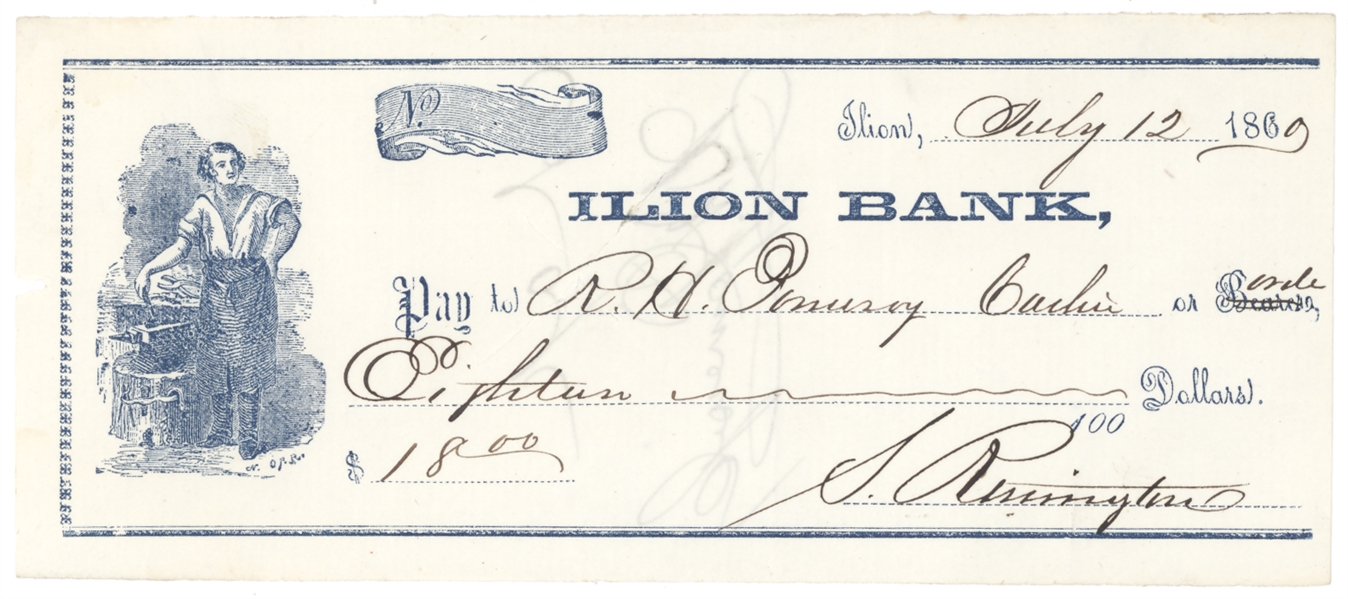 No.
Ilion, July 12 1860
ILION BANK,
Pay to R. H. Pomeroy Cashie or Bearer, orde
Eighteen Dollars.
100
$ 18 00
S. Remington
N. Orr